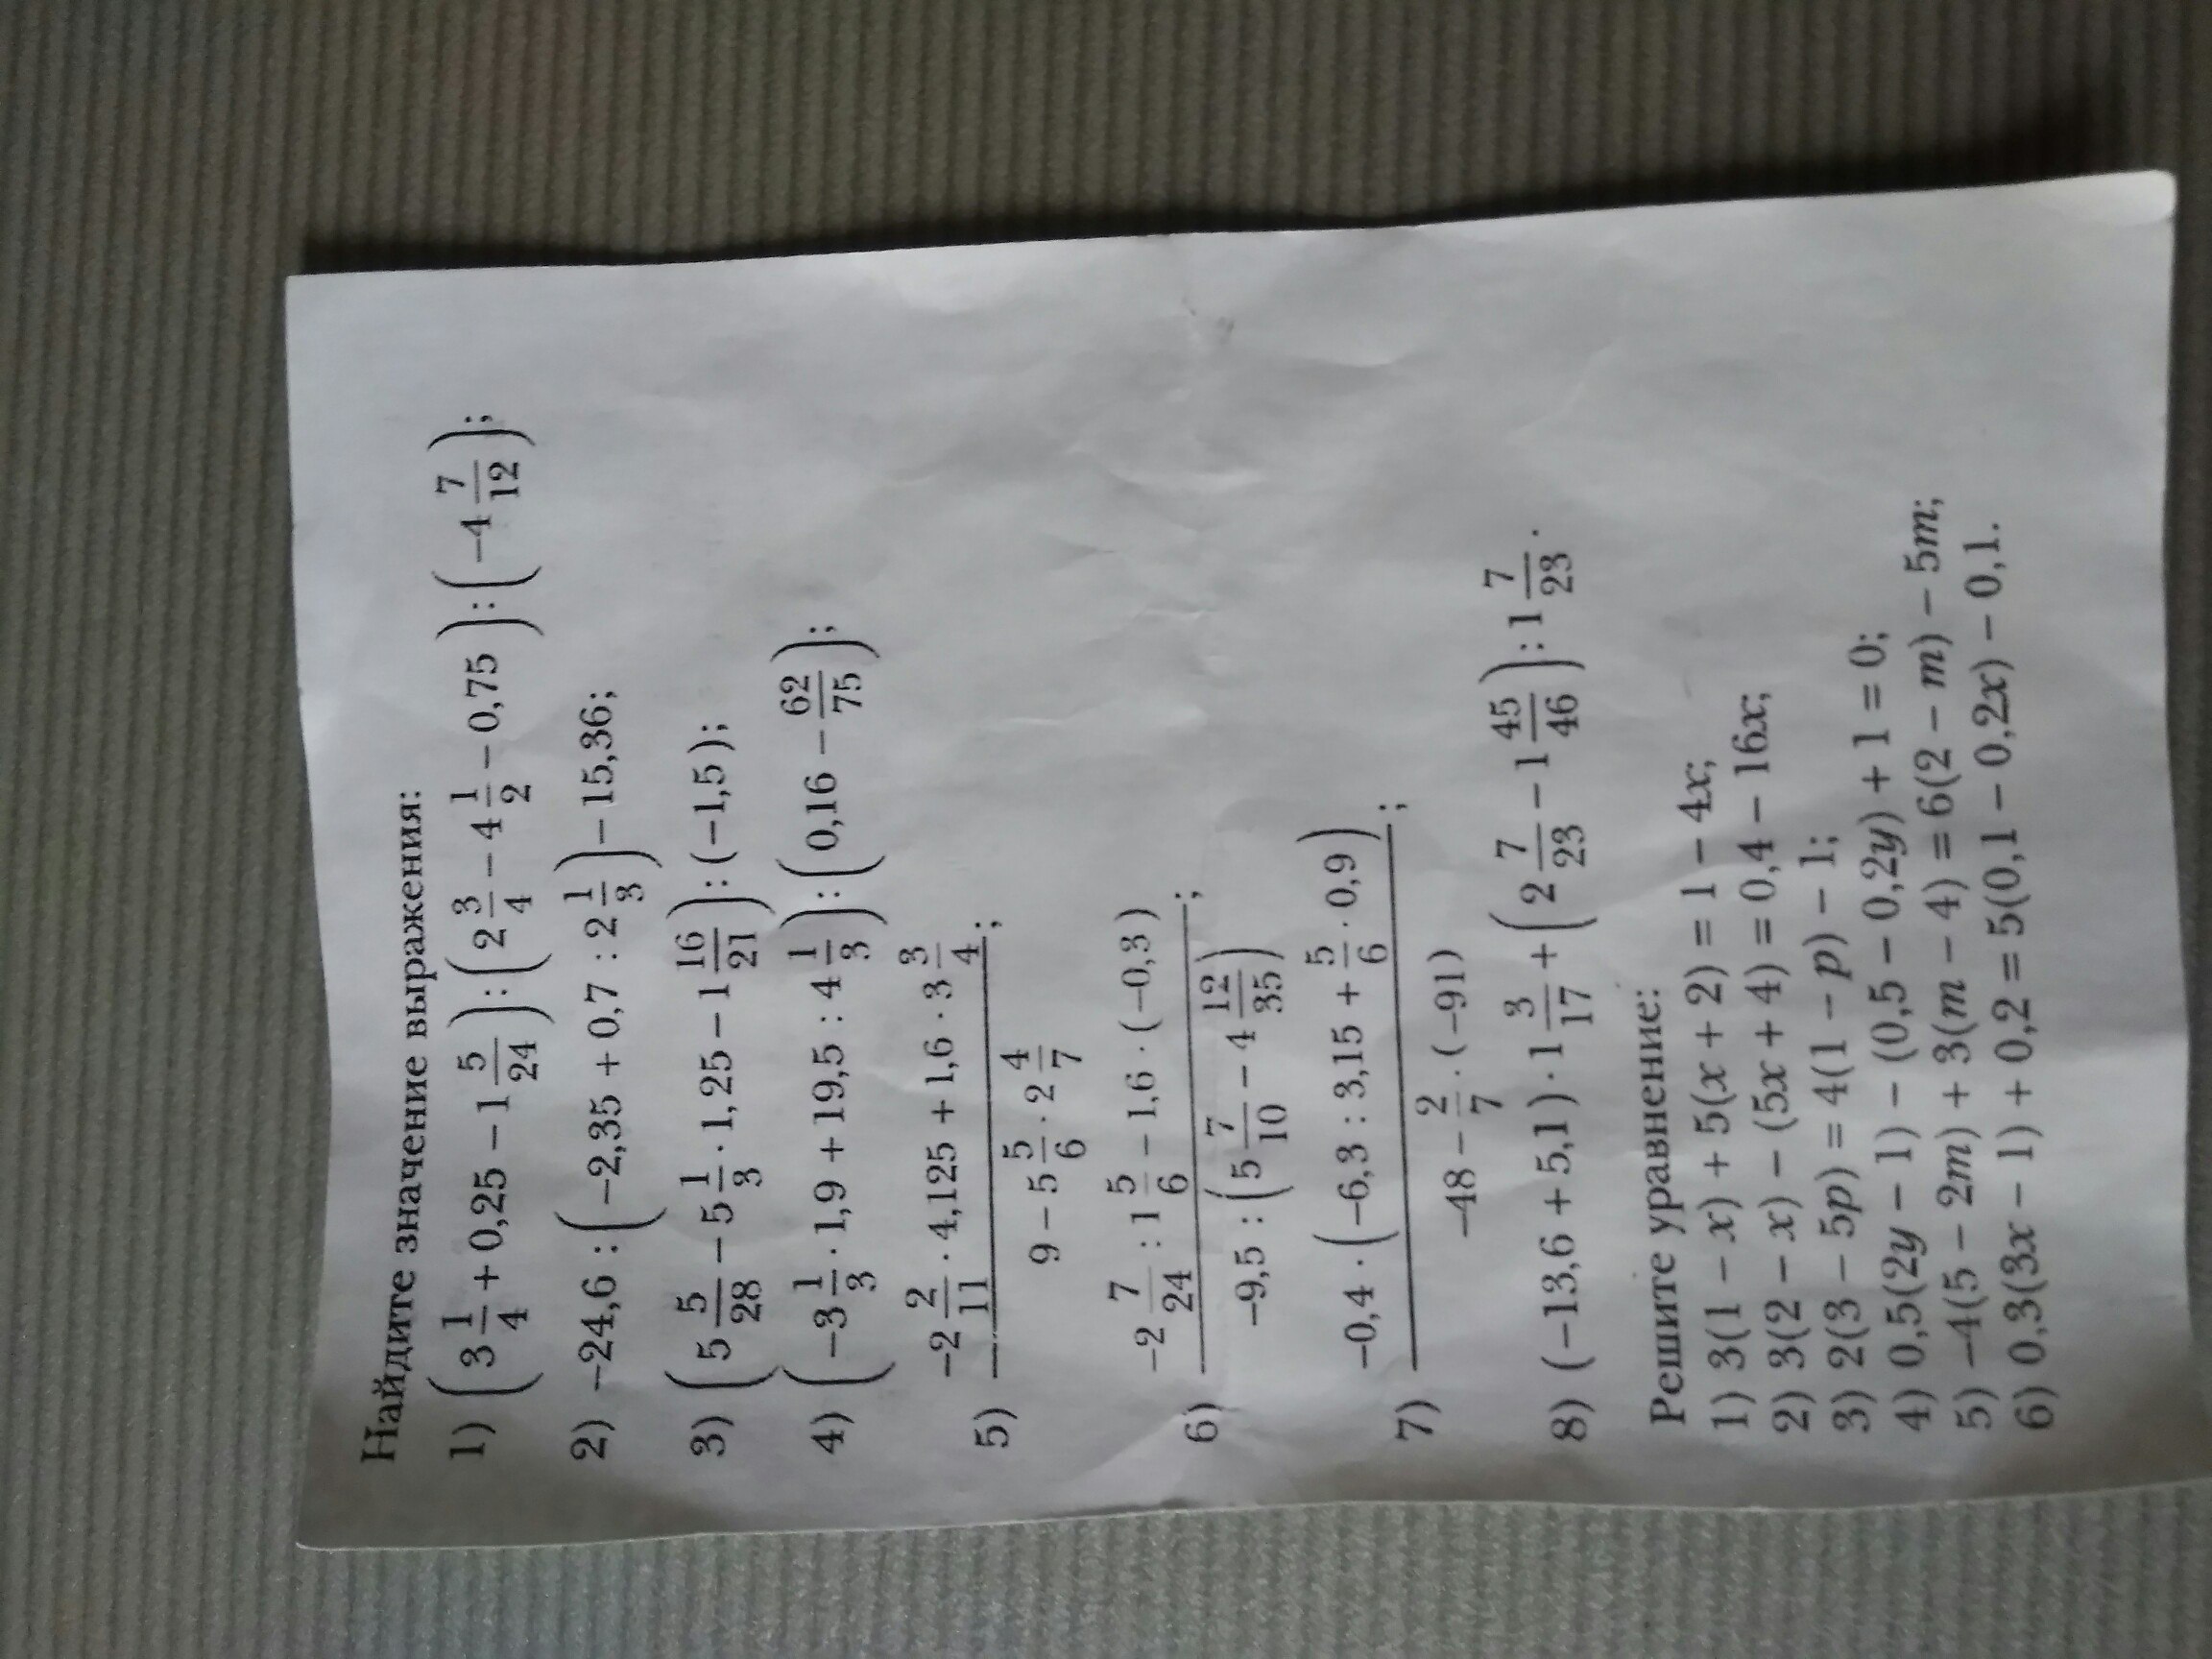 Найдите значение выражения:
1) (3 1/4 + 0,25 − 1 5/24) : (2 3/4 − 4 1/2 − 0,75) : (−4 7/12);
2) −24,6 : (−2,35 + 0,7 : 2 1/3) − 15,36;
3) (5 5/28 − 5 1/3 · 1,25 − 1 16/21) : (−1,5);
4) (−3 1/3 · 1,9 + 19,5 : 4 1/3) : (0,16 − 62/75);
−2 2/11 · 4,125 + 1,6 · 3 3/4
5) ;
9 − 5 5/6 · 2 4/7
−2 7/24 : 1 5/6 − 1,6 · (−0,3)
6) ;
−9,5 : (5 7/10 − 4 12/35)
−0,4 · (−6,3 : 3,15 + 5/6 · 0,9)
7) ;
−48 − 2/7 · (−91)
8) (−13,6 + 5,1) · 1 3/17 + (2 7/23 − 1 45/46) : 1 7/23.
Решите уравнение:
1) 3(1 − x) + 5(x + 2) = 1 − 4x;
2) 3(2 − x) − (5x + 4) = 0,4 − 16x;
3) 2(3 − 5p) = 4(1 − p) − 1;
4) 0,5(2y − 1) − (0,5 − 0,2y) + 1 = 0;
5) −4(5 − 2m) + 3(m − 4) = 6(2 − m) − 5m;
6) 0,3(3x − 1) + 0,2 = 5(0,1 − 0,2x) − 0,1.